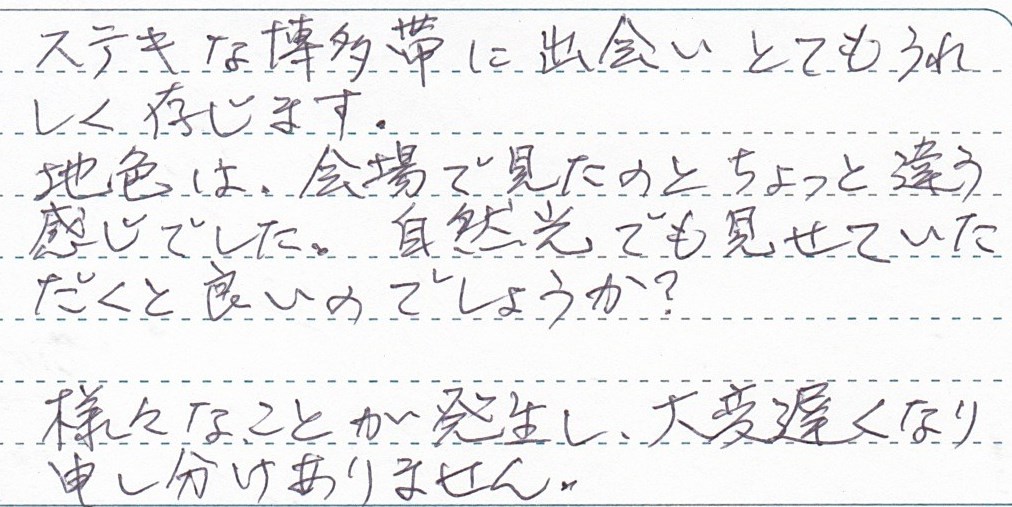 ステキな博多帯に出会いとてもうれ
しく存じます。
地色は、会場で見たのとちょっと違う
感じでした。自然光でも見せていた
だくと良いのでしょうか?
様々なことが発生し、大変遅くなり
申し分けありません。